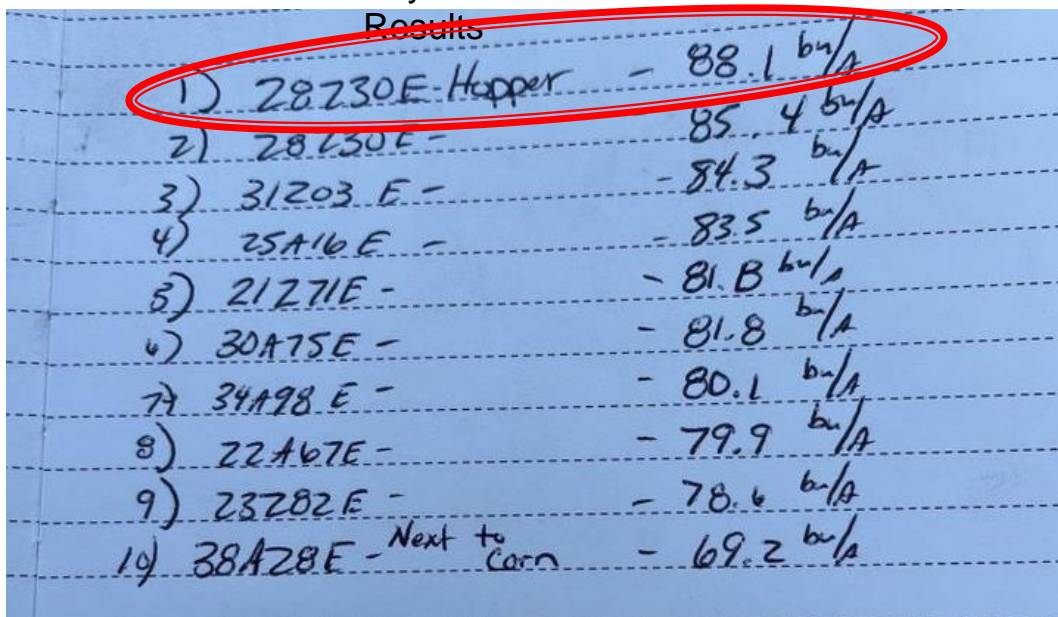 Results
1) 28230E-Hopper - 88.1 bu/A
2) 28230E- 85.4 bu/A
3) 31203 E - - 84.3 bu/A
4) 25A16 E - - 83.5 bu/A
5) 21271E - - 81.8 bu/A
6) 30A75E - - 81.8 bu/A
7) 34A98 E - - 80.1 bu/A
8) 22A67E - - 79.9 bu/A
9) 23282E - - 78.6 bu/A
10) 38A28E - Next to Corn - 69.2 bu/A